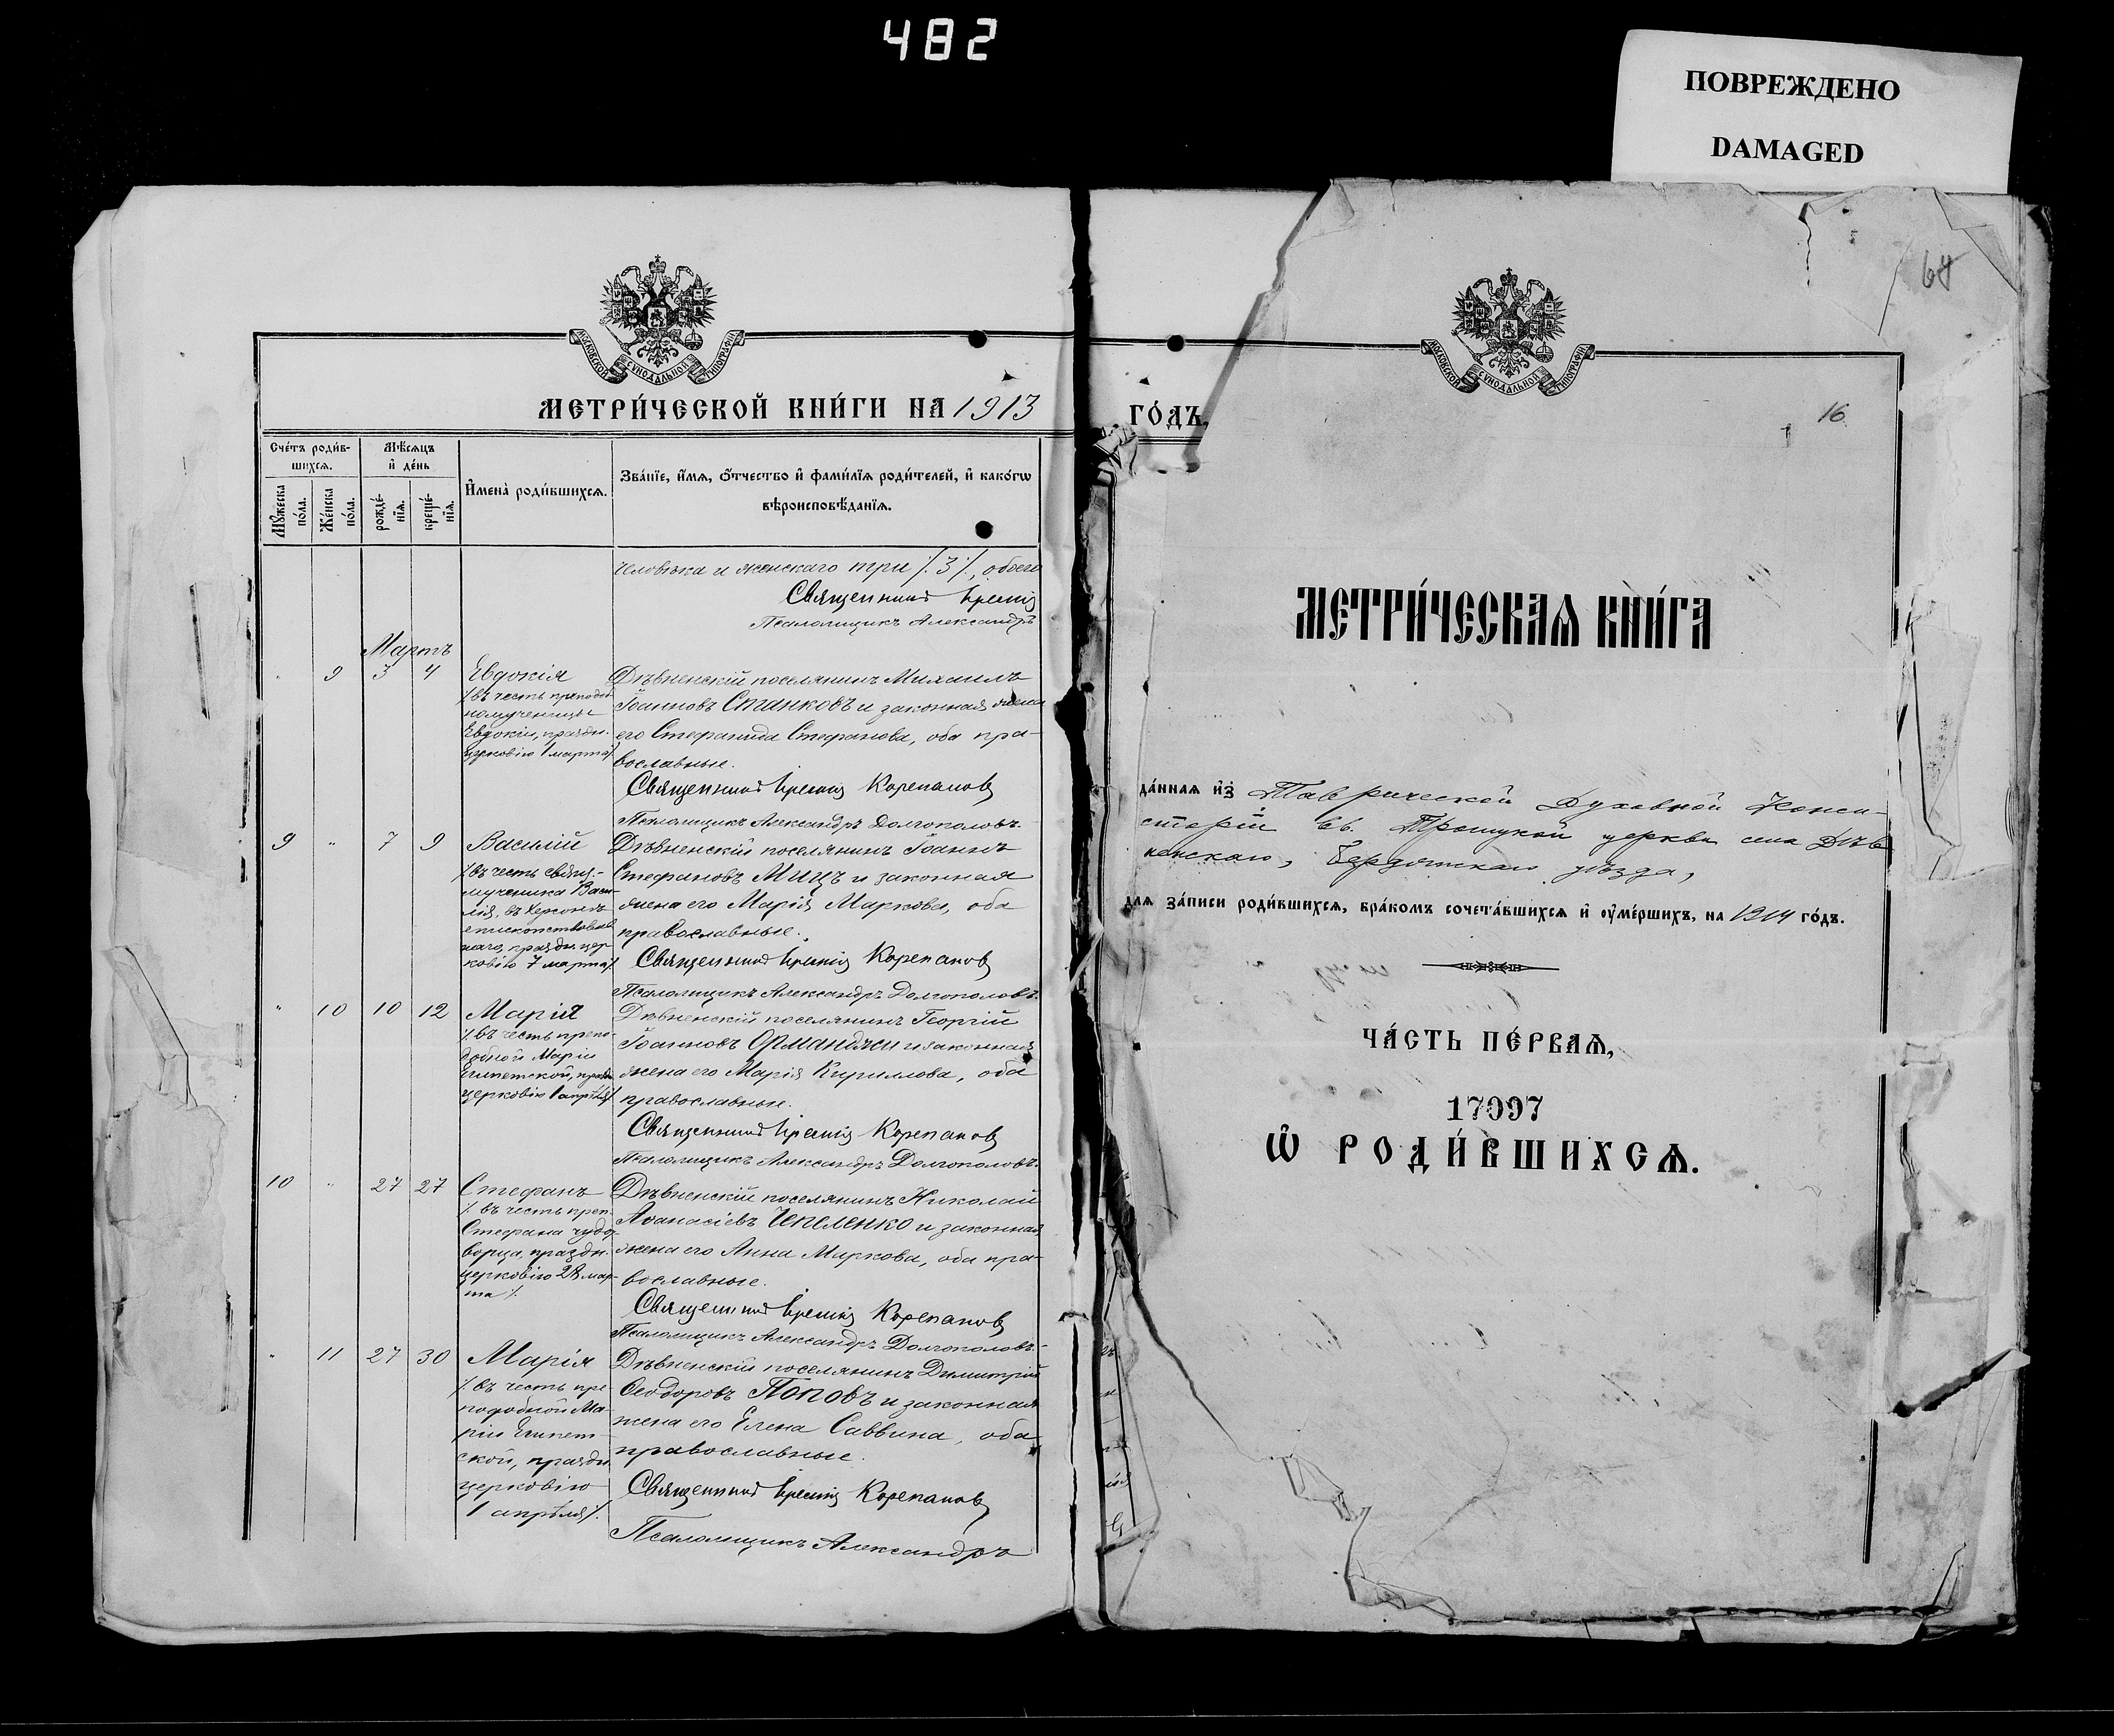 482
ПОВРЕЖДЕНО
DAMAGED
МОСКОВСКОЙ СѴНОДАЛЬНОЙ ТИПОГРАФІИ
МЕТРИ́ЧЕСКОЙ КНИ́ГИ НА 1913
ГО́ДЪ.
Сче́тъ роди́в-
шихся.
Мѣ́сяцъ
и҆ де́нь
Мꙋ́жеска
по́ла.
Же́нска
по́ла.
рожде́-
нїѧ.
креще́-
нїѧ.
И҆мена̀ роди́вшихсѧ.
Зва́нїе, и҆́мѧ, ѻ҆́тчество и҆ фами́лїѧ роди́телей, и҆ како́гѡ
вѣроисповѣ́данїѧ.
человѣка и женскаго три /.3/., обоего
Священникъ
Псаломщикъ Александръ
Мартъ
9 3 4 Евдокія
/.въ честь преподоб-
номученицы
Евдокіи, праздн.
церковію 1 марта/.
Дѣвненскій поселянинъ Михаилъ
Іоанновъ Станковъ и законная жена
его Стефанида Стефанова, оба пра-
вославные.
Священникъ Корепанов
Псаломщикъ Александръ Долгополовъ.
9 " 7 9 Василій
/.въ честь свящ.-
мученика Васи-
лія, въ Херсонѣ
епископствовав
шаго, праздн. цер
ковію 7 марта/.
Дѣвненскій поселянинъ Іоаннъ
Стефановъ Мицъ и законная
жена его Марія Маркова, оба
православные.
Священникъ Корепанов
Псаломщикъ Александръ Долгополовъ.
" 10 10 12 Марія
/.въ честь препо-
добной Маріи
Египетской, праздн
церковію 1 апрѣля/.
Дѣвненскій поселянинъ Георгій
Іоанновъ Орманджи и законная
жена его Марія Кириллова, оба
православные.
Священникъ Корепанов
Псаломщикъ Александръ Долгополовъ.
10 " 27 27 Стефанъ
/. въ честь преп.
Стефана чудо-
ворца, праздн.
церковію 28 мар-
та /.
Дѣвненскій поселянинъ Николай
Аѳанасіевъ Чепеленко и законная
жена его Анна Маркова, оба пра-
вославные.
Священникъ Корепанов
Псаломщикъ Александръ Долгополовъ.
" 11 27 30 Марія
/. въ честь пре
подобной Ма-
ріи Египет-
ской, праздн
церковію
1 апрѣля/.
Дѣвненскій поселянинъ Димитрій
Ѳеодоровъ Поповъ и законная
жена его Елена Саввина, оба
православные.
Священникъ Корепанов
Псаломщикъ Александръ
64
МОСКОВСКОЙ СѴНОДАЛЬНОЙ ТИПОГРАФІИ
16
МЕТРИ́ЧЕСКАѦ КНИ́ГА
да́ннаѧ и҆з̾ Таврической Духовной Конси-
сторіи въ Троицкой церкви села Дѣв
ненскаго, Бердянскаго уѣзда,
для за́писи роди́вшихсѧ, бра́комъ сочета́вшихсѧ и҆ ᲂу҆ме́ршихъ, на 1914 го́дъ.
ЧА́СТЬ ПЕ́РВАѦ,
17097
Ѽ РОДИ́ВШИХСѦ.